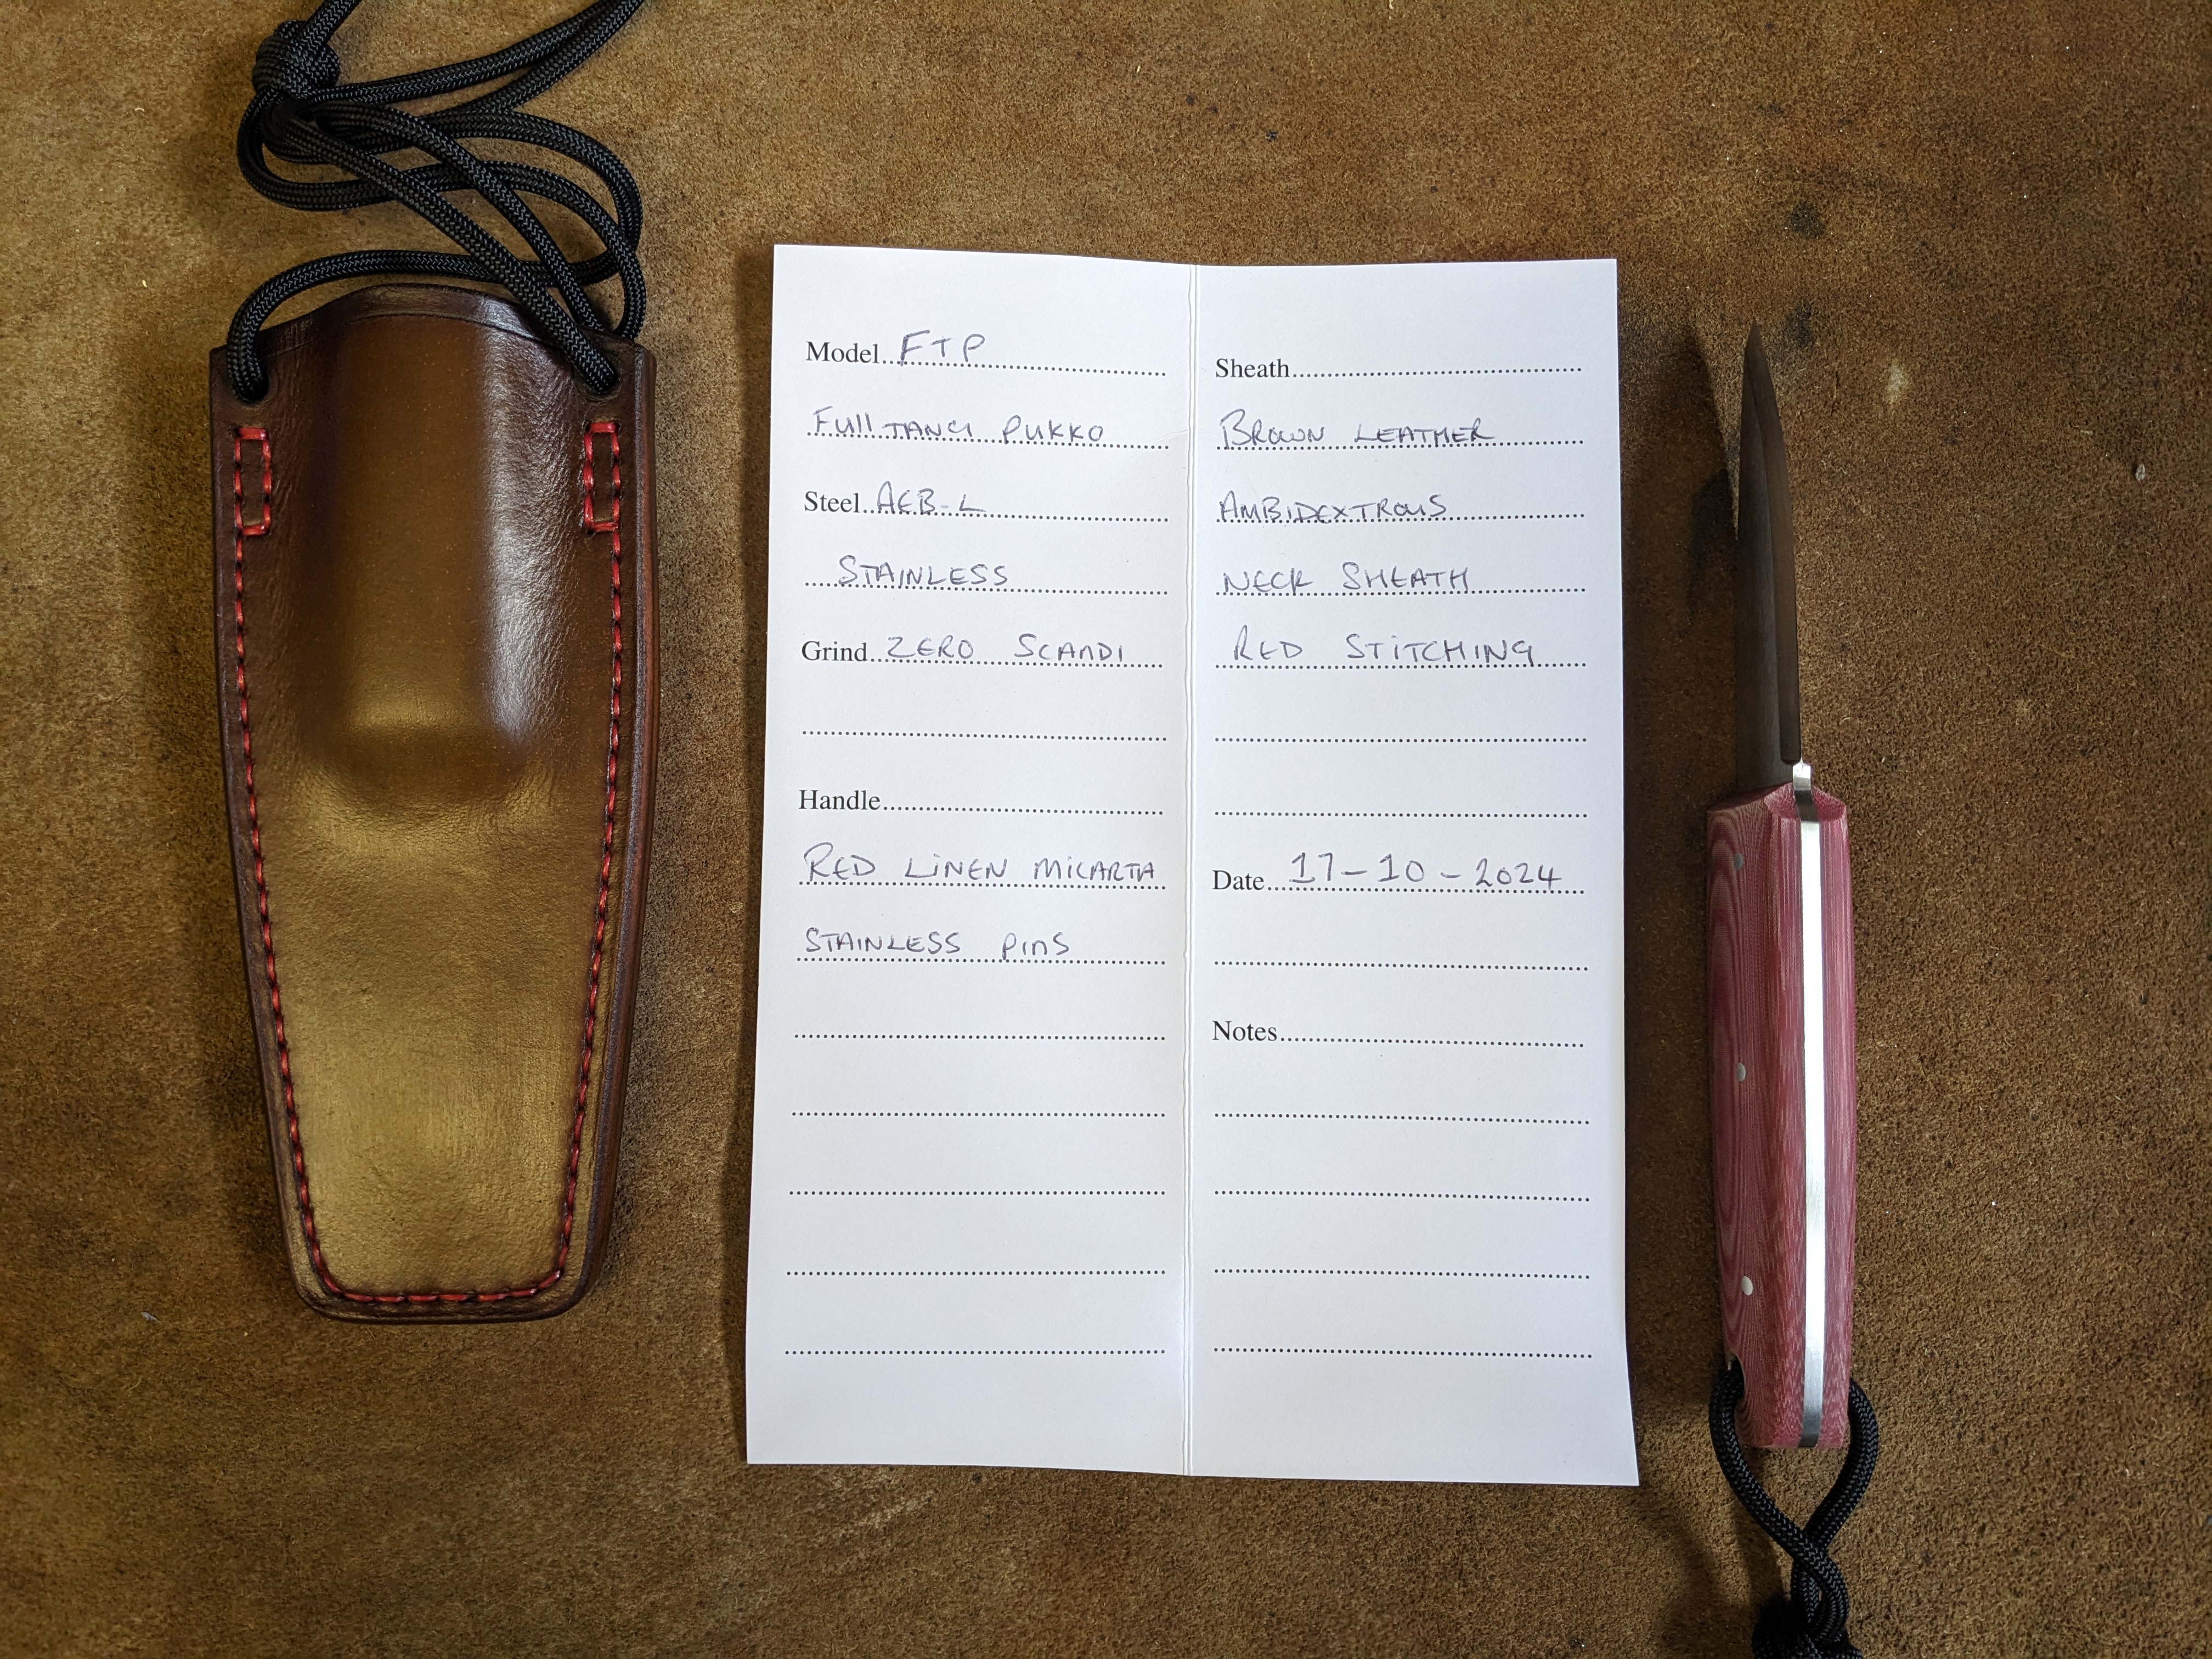 Model FTP
Full TANG PUKKO
Steel AEB-L
STAINLESS
Grind ZERO SCANDI
Handle
RED LINEN MICARTA
STAINLESS PINS
Sheath
BROWN LEATHER
AMBIDEXTROUS
NECK SHEATH
RED STITCHING
Date 17-10-2024
Notes